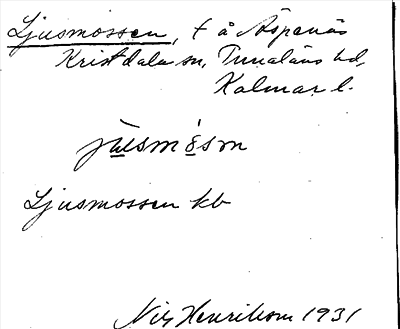 Ljusmossen, t å Äspenäs
Kristdala sn, Tunaläns hd,
Kalmar l.
jusmòsm
Ljusmossen kb
Nils Henrikson 1931